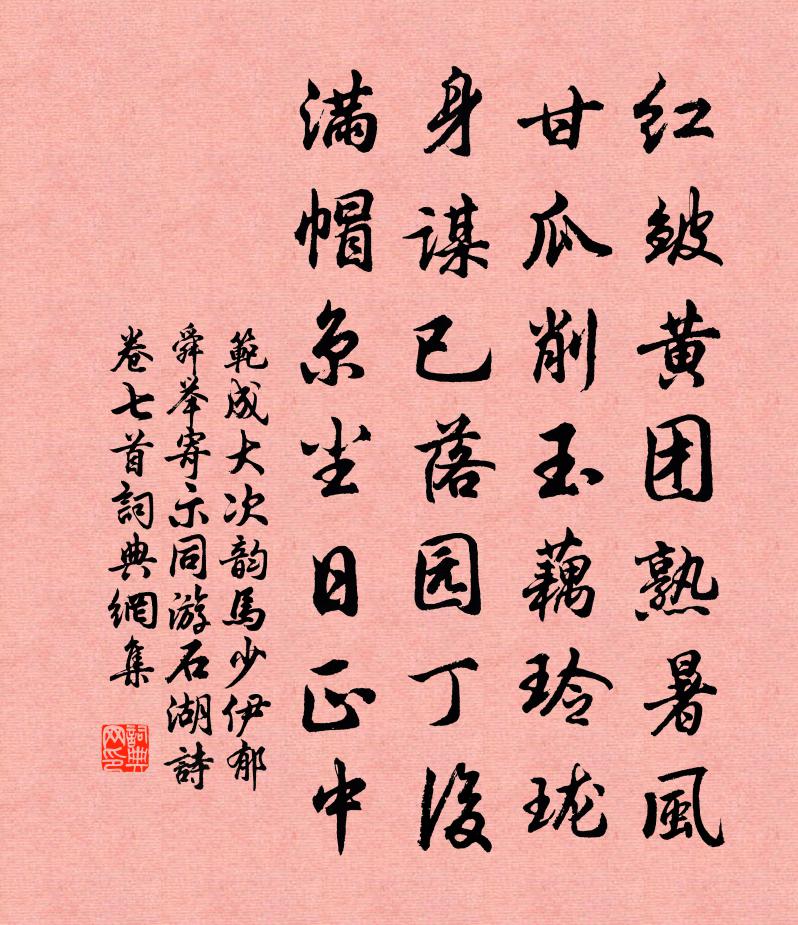 红皱黄团熟暑風
甘瓜削玉藕玲珑
身谋已落园丁後
满帽京尘日正中
範成大次韵馬少伊郁
舜举寄示同游石湖詩
卷七首詞典網集
詞典网印